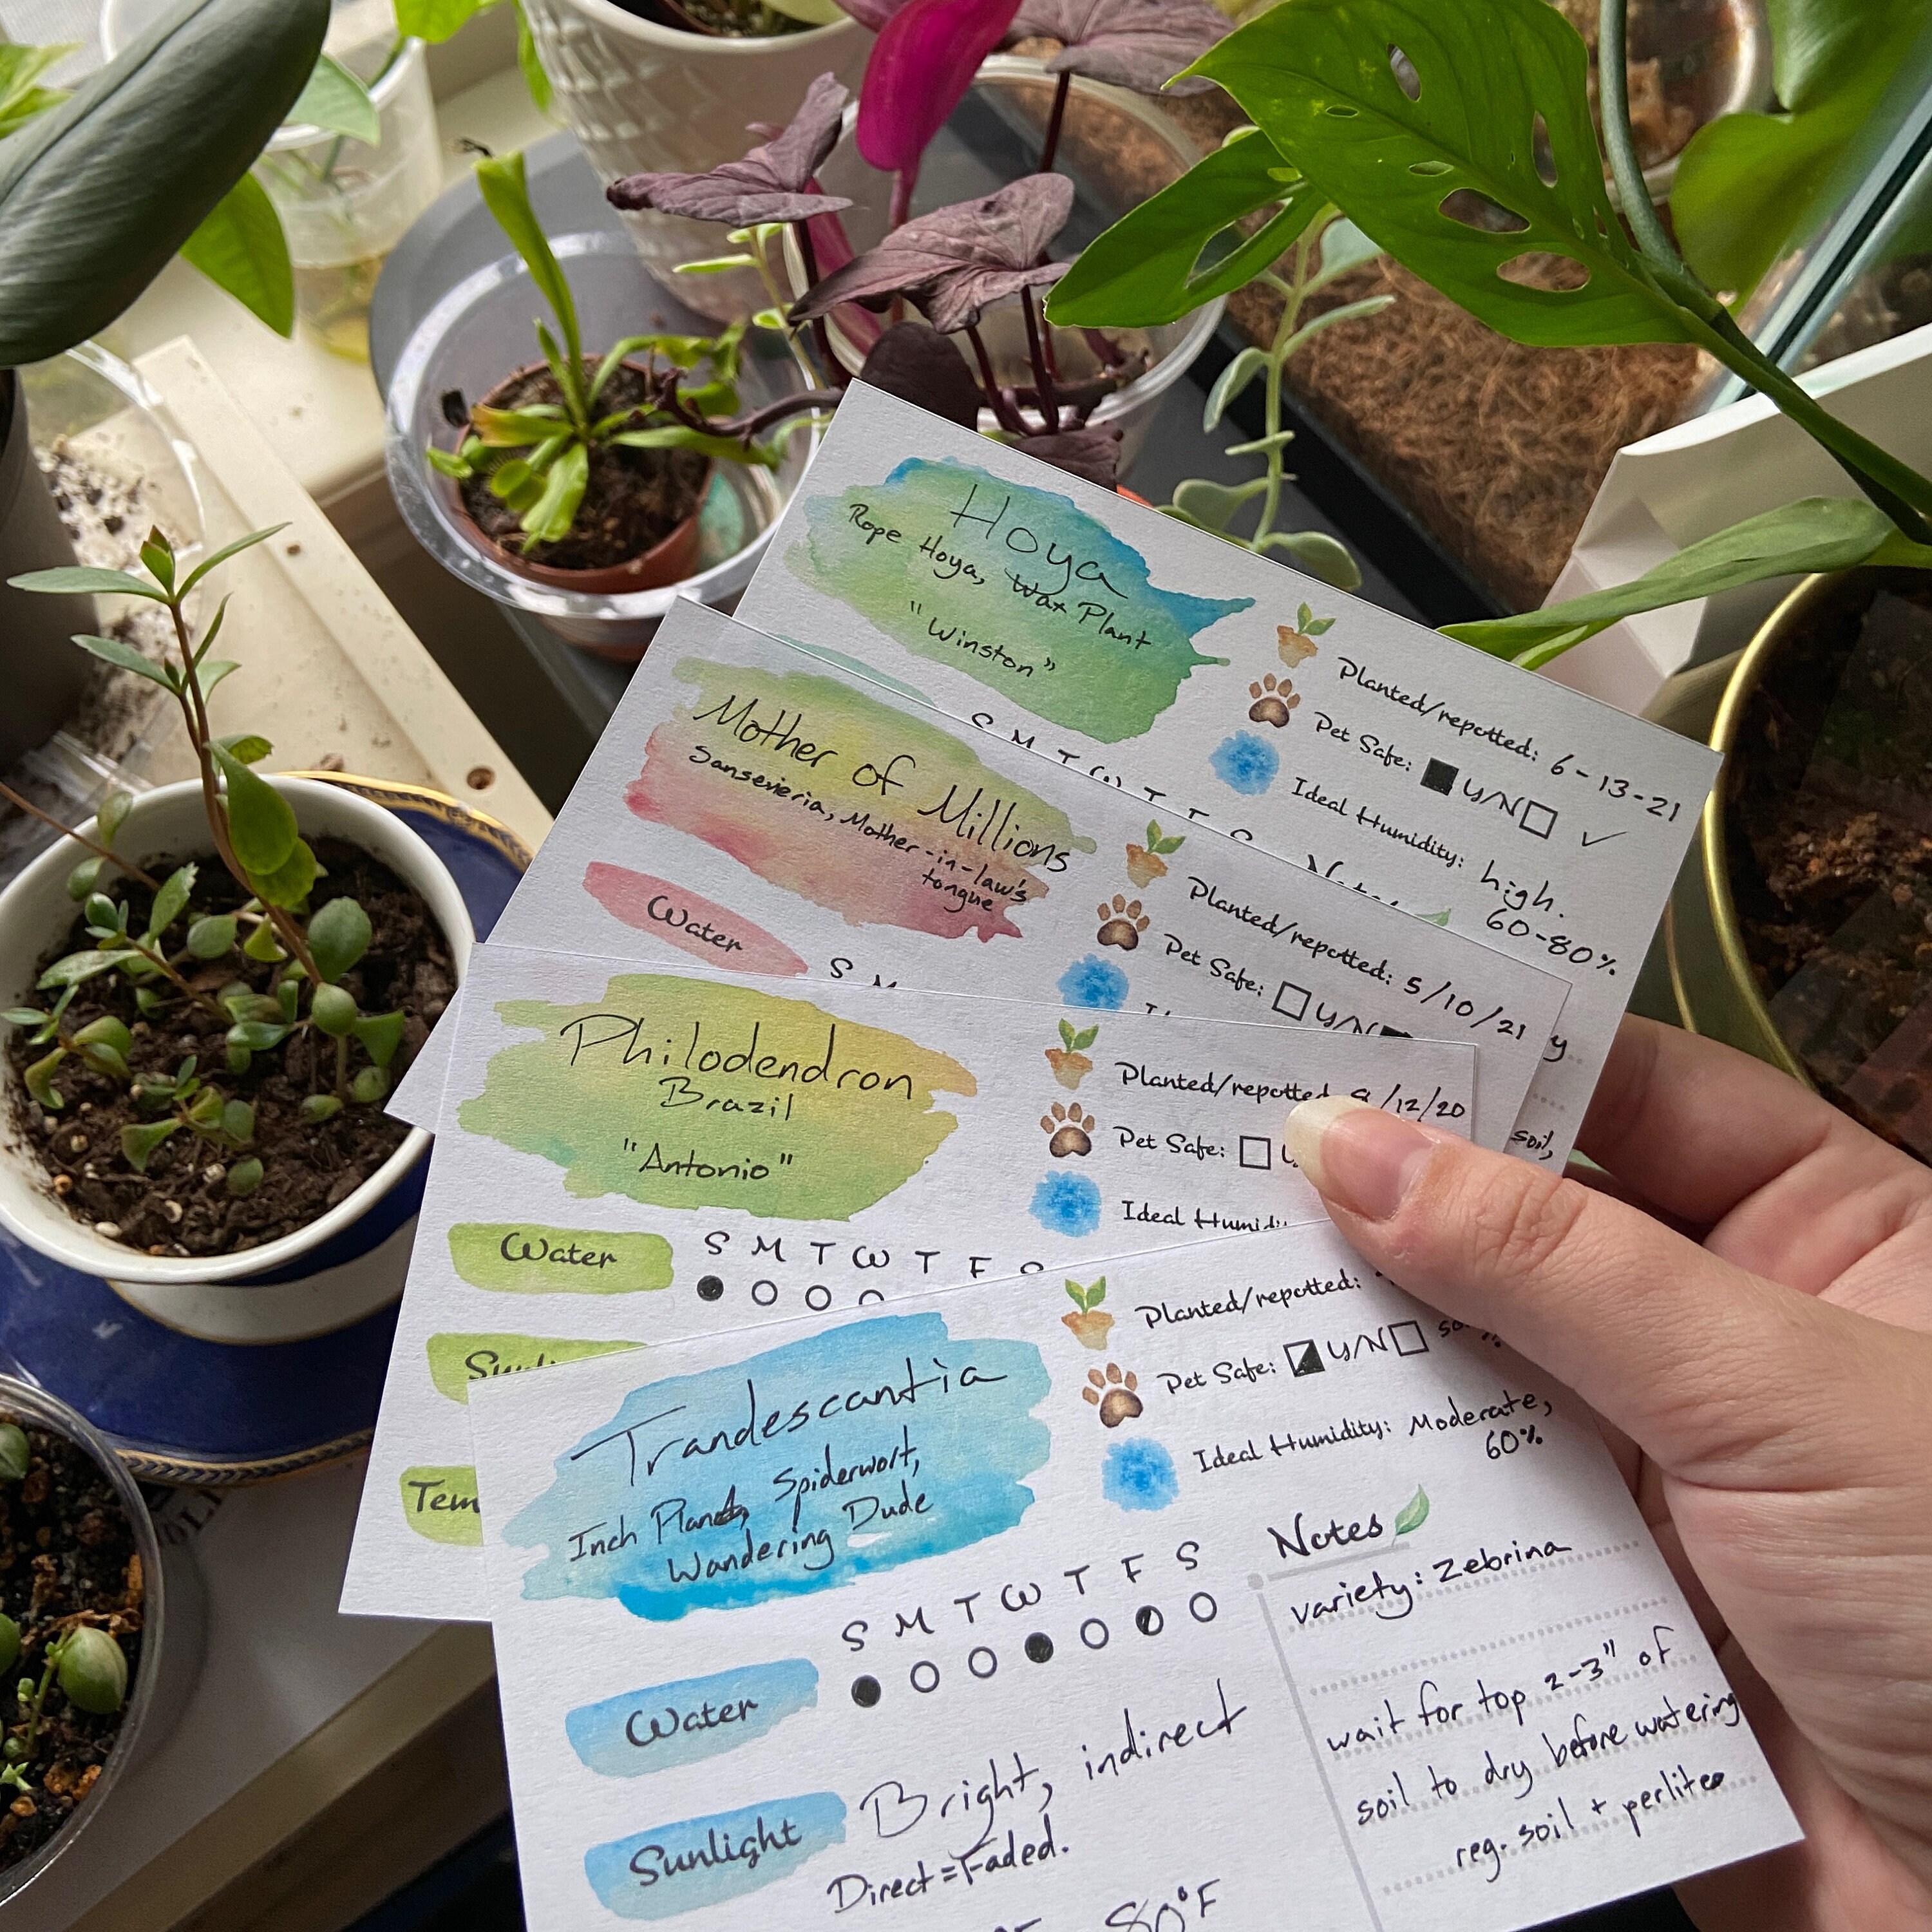 Hoya
Rope Hoya, Wax Plant
"Winston"
Planted/repotted: 6-13-21
Pet Safe: Y/N ✓
Ideal Humidity: high.
60-80%
S M T W T F S
Notes
Mother of Millions
Sansevieria, Mother-in-law's
tongue
Planted/repotted: 5/10/21
Pet Safe: Y/N
Water
S M
soil,
Philodendron
Brazil
"Antonio"
Planted/repotted /12/20
Pet Safe:
Ideal
Water
S M T W T F S
Trandescantia
Inch Plant, Spiderwort,
Wandering Dude
Planted/repotted:
Pet Safe: Y/N
Ideal Humidity: Moderate,
60%
S M T W T F S
Water
Sunlight
Bright, indirect
Direct = Faded.
80°F
Notes
variety: Zebrina
wait for top 2-3" of
soil to dry before watering
reg. soil + perlite